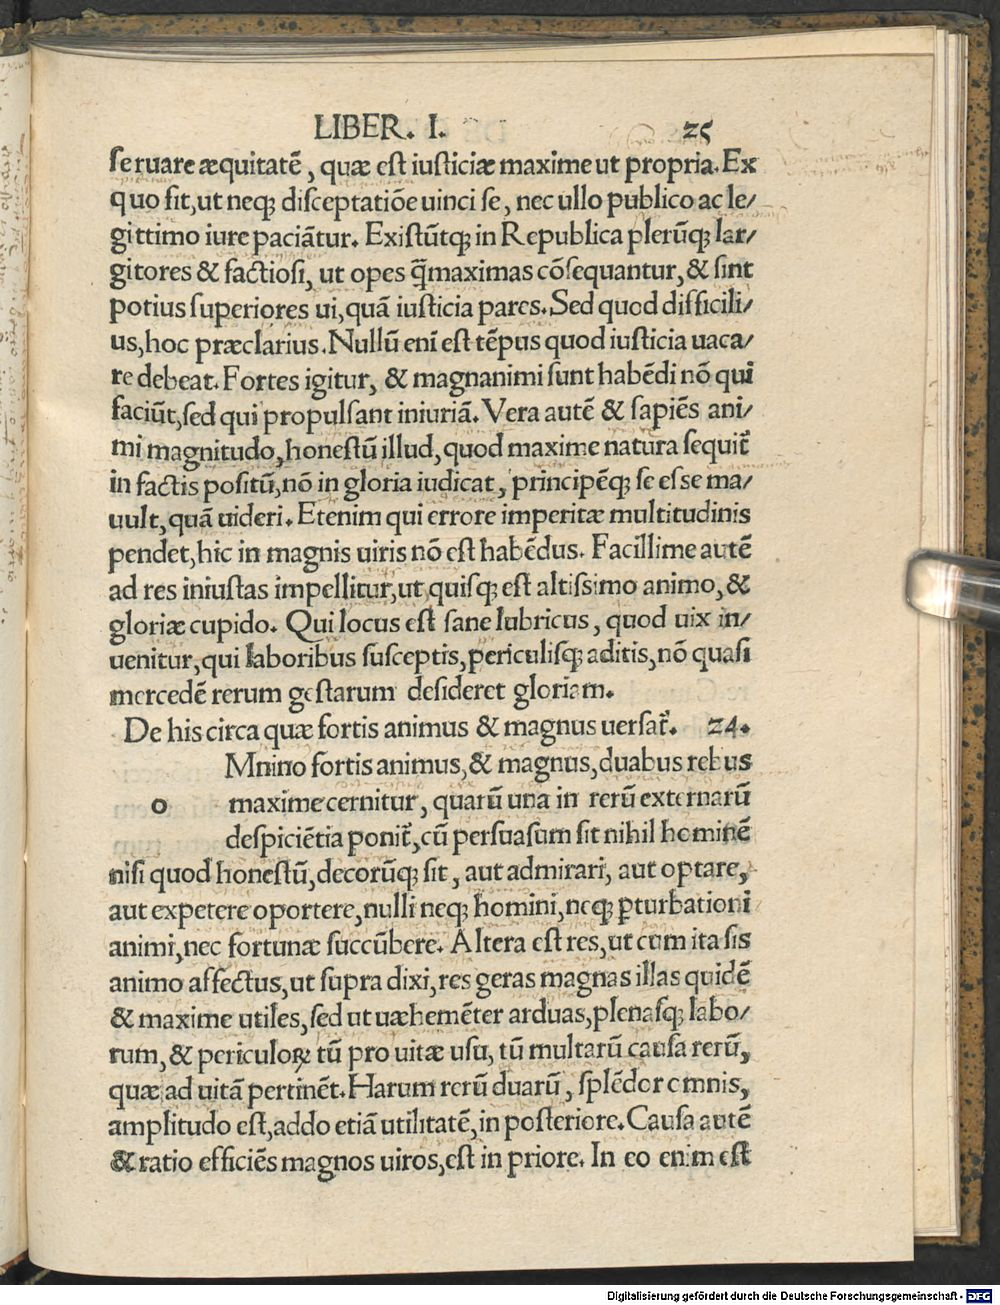 LIBER. I. 25
seruare æquitatē, quæ est iusticiæ maxime ut propria. Ex
quo fit, ut neqꝫ disceptatiōe uinci se, nec ullo publico ac le/
gittimo iure paciātur. Existūtqꝫ in Republica plerūqꝫ lar/
gitores & factiosi, ut opes q̄maximas cōsequantur, & sint
potius superiores ui, quā iusticia pares. Sed quod difficili/
us, hoc præclarius. Nullū eni est tēpus quod iusticia uaca/
re debeat. Fortes igitur, & magnanimi sunt habēdi nō qui
faciūt, sed qui propulsant iniuriā. Vera autē & sapiēs ani/
mi magnitudo, honestū illud, quod maxime natura sequit᷑
in factis positū, nō in gloria iudicat, principēqꝫ se esse ma/
uult, quā uideri. Etenim qui errore imperitæ multitudinis
pendet, hic in magnis uiris nō est habēdus. Facillime autē
ad res iniustas impellitur, ut quisqꝫ est altissimo animo, &
gloriæ cupido. Qui locus est sane lubricus, quod uix in/
uenitur, qui laboribus susceptis, periculisqꝫ aditis, nō quasi
mercedē rerum gestarum desideret gloriam.
De his circa quæ fortis animus & magnus uersat᷑. 24.
Mnino fortis animus, & magnus, duabus rebus
o maxime cernitur, quarū una in rerū externarū
despiciētia ponit᷑, cū persuasum sit nihil hominē
nisi quod honestū, decorūqꝫ sit, aut admirari, aut optare,
aut expetere oportere, nulli neqꝫ homini, neqꝫ ꝑturbationi
animi, nec fortunæ succūbere. Altera est res, ut cum ita sis
animo affectus, ut supra dixi, res geras magnas illas quidē
& maxime utiles, sed ut uæhemēter arduas, plenasqꝫ labo/
rum, & periculoꝝ tū pro uitæ usu, tū multarū causa rerū,
quæ ad uitā pertinēt. Harum rerū duarū, splēdor omnis,
amplitudo est, addo etiā utilitatē, in posteriore. Causa autē
& ratio efficiēs magnos uiros, est in priore. In eo enim est
Digitalisierung gefördert durch die Deutsche Forschungsgemeinschaft - DFG